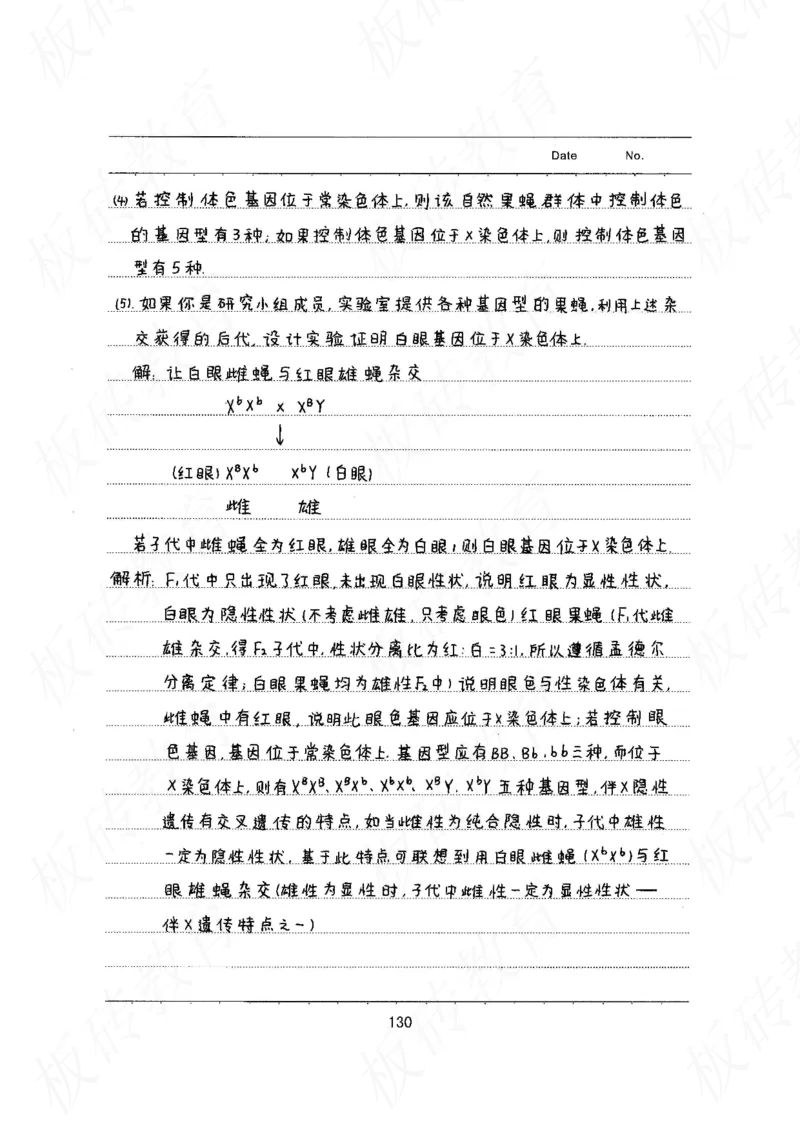 Date No.
(4) 若控制体色基因位于常染色体上,则该自然果蝇群体中控制体色
的基因型有3种;如果控制体色基因位于X染色体上,则控制体色基因
型有5种.
(5). 如果你是研究小组成员,实验室提供各种基因型的果蝇,利用上述杂
交获得的后代,设计实验证明白眼基因位于X染色体上.
解: 让白眼雌蝇与红眼雄蝇杂交
XᵇXᵇ x XᴮY
↓
(红眼) XᴮXᵇ XᵇY (白眼)
雌 雄
若子代中雌蝇全为红眼,雄眼全为白眼,则白眼基因位于X染色体上.
解析: F₁代中只出现了红眼,未出现白眼性状,说明红眼为显性性状,
白眼为隐性性状(不考虑雌雄,只考虑眼色)红眼果蝇(F₁代雌
雄杂交,得F₂子代中,性状分离比为红:白=3:1,所以遵循孟德尔
分离定律;白眼果蝇均为雄性F₂中)说明眼色与性染色体有关,
雌蝇中有红眼,说明此眼色基因应位于X染色体上;若控制眼
色基因,基因位于常染色体上.基因型应有BB、Bb、bb三种,而位于
X染色体上,则有XᴮXᴮ、XᴮXᵇ、XᵇXᵇ、XᴮY、XᵇY五种基因型,伴X隐性
遗传有交叉遗传的特点,如当雌性为纯合隐性时,子代中雄性
一定为隐性性状,基于此特点可联想到用白眼雌蝇(XᵇXᵇ)与红
眼雄蝇杂交(雄性为显性时,子代中雌性一定为显性性状——
伴X遗传特点之一)
130
板砖教育